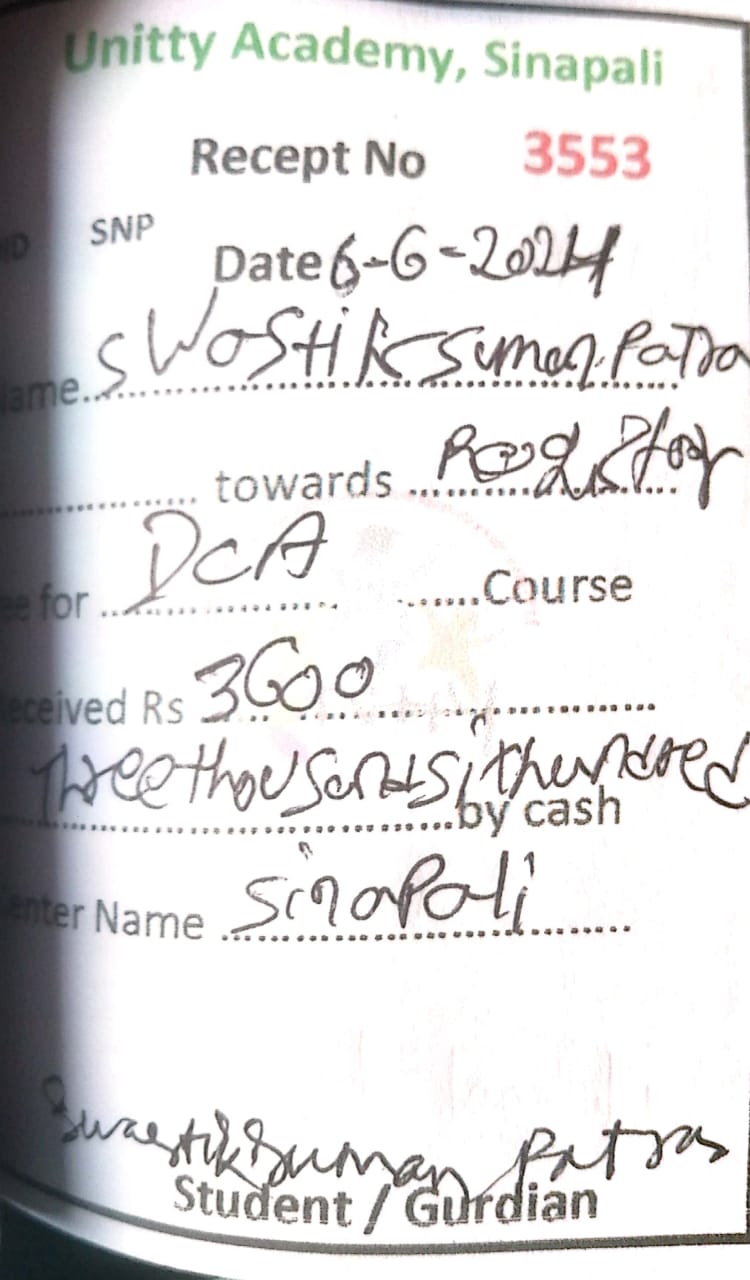 Unitty Academy, Sinapali
Recept No 3553
ID SNP
Date 6-6-2024
ame. Swostik Suman Patra
towards
ee for DCA Course
eceived Rs 3600
Threethousandsixhundred
by cash
enter Name Sinapali
Swastik Suman Patra
Student / Gurdian